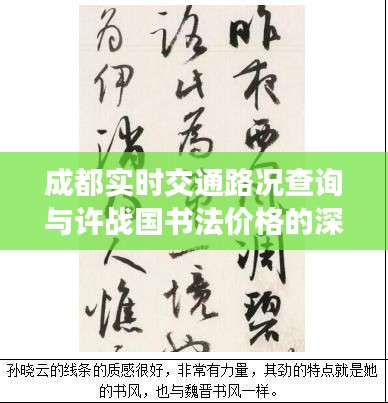 昨夜西风凋碧
路此为第一境也
为伊消得人憔
成都实时交通路况查询
与许战国书法价格的深
孙晓云的线条的质感很好，非常有力量，其劲的特点就是她
的书风，也与魏晋书风一样。